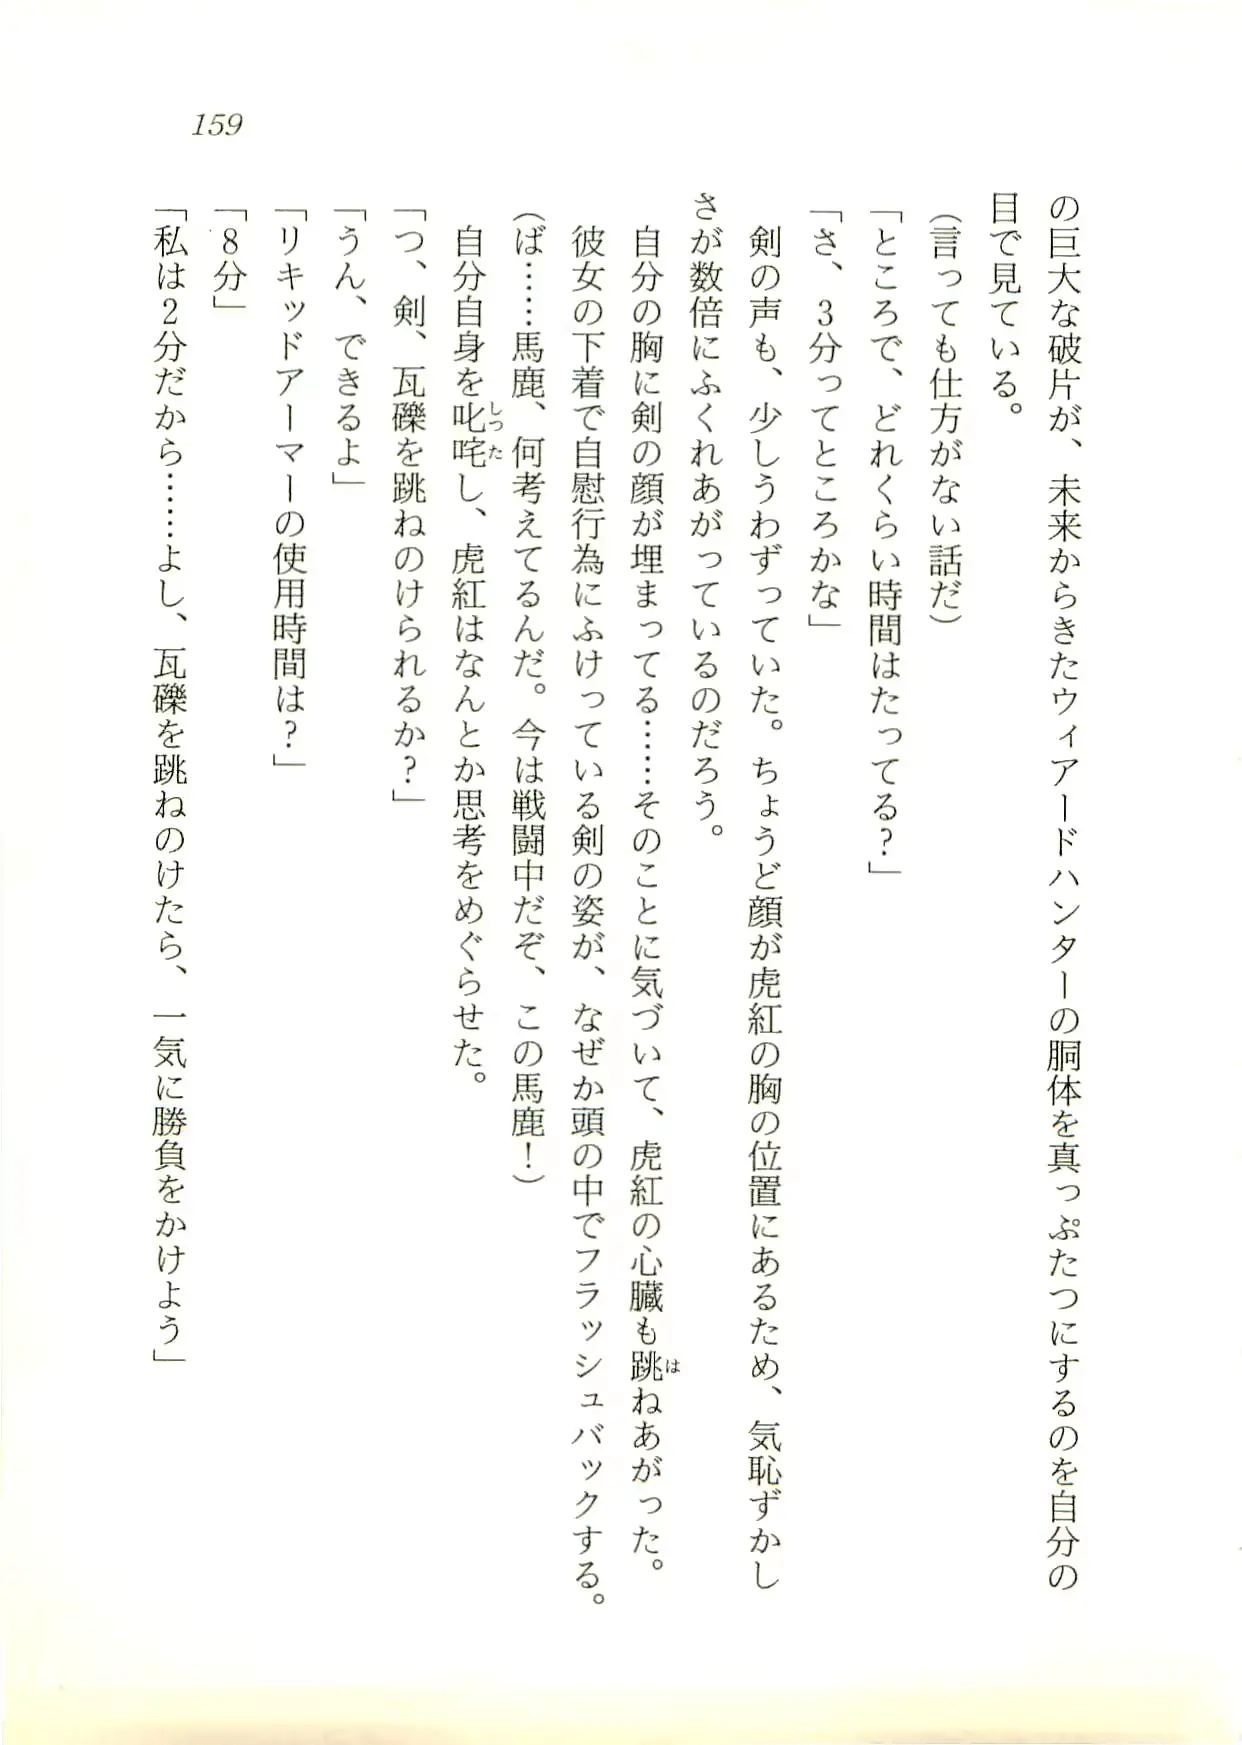 159
の巨大な破片が、未来からきたウィアードハンターの胴体を真っぷたつにするのを自分の
目で見ている。
(言っても仕方がない話だ)
「ところで、どれくらい時間はたってる?」
「さ、3分ってところかな」
剣の声も、少しうわずっていた。ちょうど顔が虎紅の胸の位置にあるため、気恥ずかし
さが数倍にふくれあがっているのだろう。
自分の胸に剣の顔が埋まってる……そのことに気づいて、虎紅の心臓も跳ねあがった。
彼女の下着で自慰行為にふけっている剣の姿が、なぜか頭の中でフラッシュバックする。
(ば……馬鹿、何考えてるんだ。今は戦闘中だぞ、この馬鹿!)
自分自身を叱咤し、虎紅はなんとか思考をめぐらせた。
「つ、剣、瓦礫を跳ねのけられるか?」
「うん、できるよ」
「リキッドアーマーの使用時間は?」
「8分」
「私は2分だから……よし、瓦礫を跳ねのけたら、一気に勝負をかけよう」